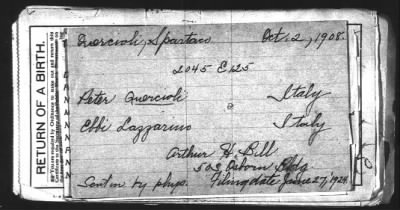 Quercioli, Spartaco Oct. 12, 1908.
2045 E 125
Peter Quercioli Italy
Ebbi Lazzarino Italy
Arthur H. Bill
503 Osborn Bldg
Sent in by phys. Filing date June 27, 1924
RETURN OF A BIRTH.